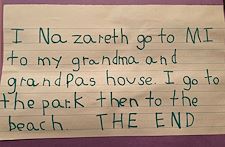 I Nazareth go to MI
to my grandma and
grandpas house. I go to
the park then to the
beach. THE END